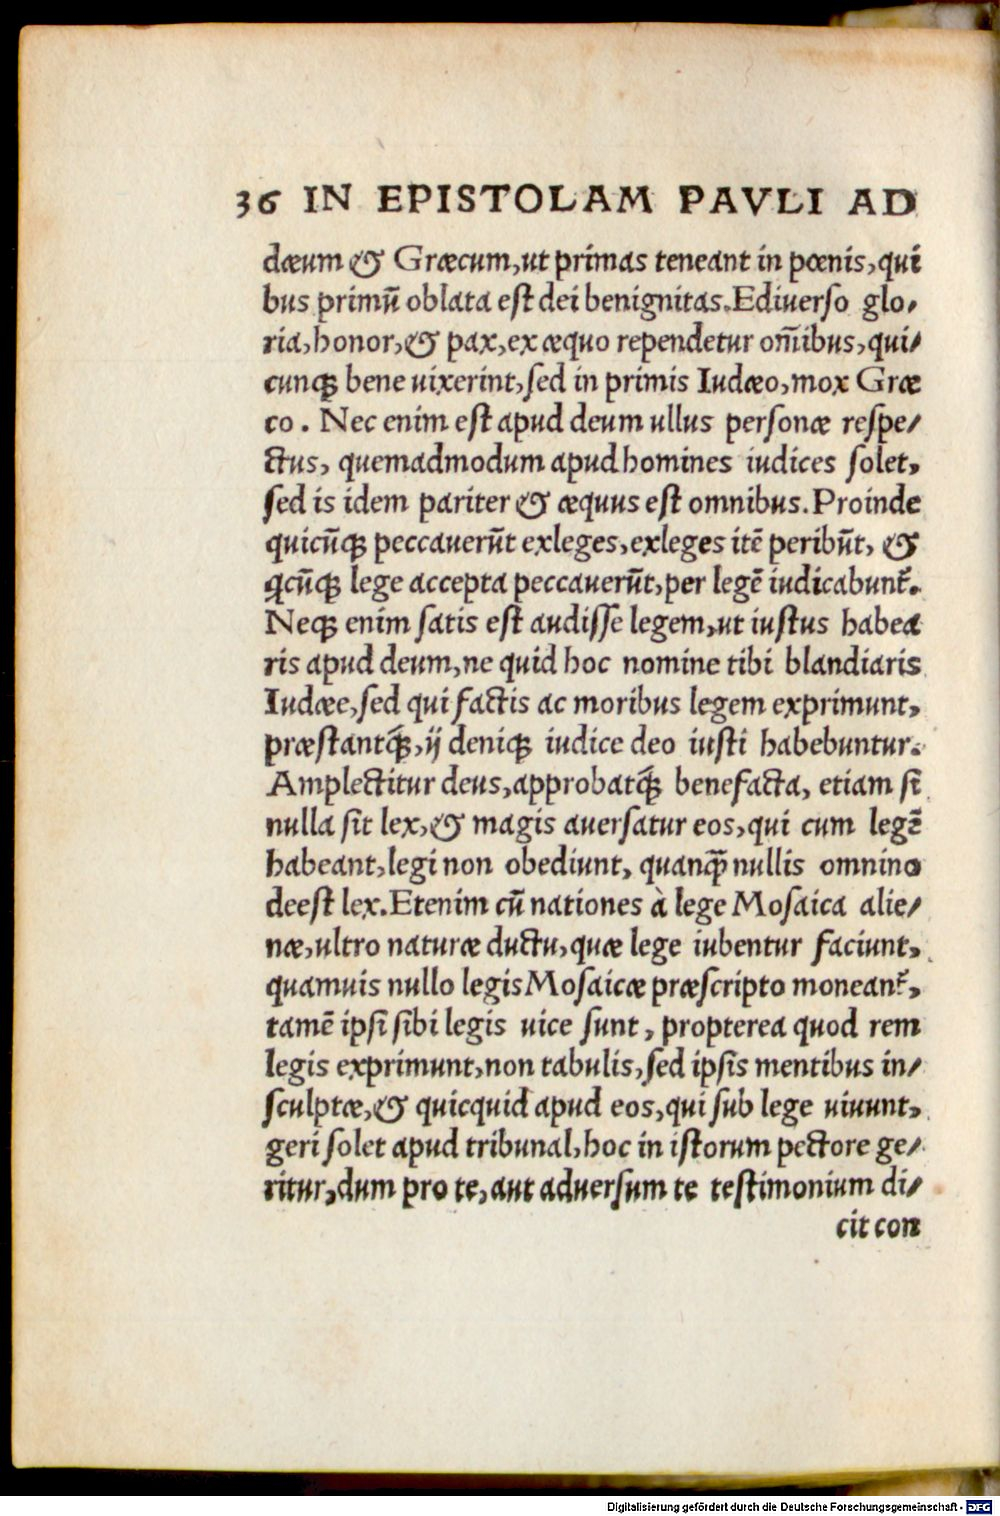 36 IN EPISTOLAM PAVLI AD
dæum & Græcum, ut primas teneant in pœnis, qui
bus primũ oblata est dei benignitas. Ediuerso glo-
ria, honor, & pax, ex æquo rependetur om̃ibus, qui-
cunqꝫ bene uixerint, sed in primis Iudæo, mox Græ
co. Nec enim est apud deum ullus personæ respe-
ctus, quemadmodum apud homines iudices solet,
sed is idem pariter & æquus est omnibus. Proinde
quicũqꝫ peccauerũt exleges, exleges itẽ peribũt, &
ꝗcũqꝫ lege accepta peccauerũt, per legẽ iudicabunt᷑.
Neqꝫ enim satis est audisse legem, ut iustus habea
ris apud deum, ne quid hoc nomine tibi blandiaris
Iudæe, sed qui factis ac moribus legem exprimunt,
præstantq́ꝫ, ij deniqꝫ iudice deo iusti habebuntur.
Amplectitur deus, approbatq́ꝫ benefacta, etiam si
nulla sit lex, & magis auersatur eos, qui cum legẽ
habeant, legi non obediunt, quanꝗ̃ nullis omnino
deest lex. Etenim cũ nationes à lege Mosaica alie-
næ, ultro naturæ ductu, quæ lege iubentur faciunt,
quamuis nullo legis Mosaicæ præscripto moneant᷑,
tamẽ ipsi sibi legis uice sunt, propterea quod rem
legis exprimunt, non tabulis, sed ipsis mentibus in-
sculptæ, & quicquid apud eos, qui sub lege uiuunt,
geri solet apud tribunal, hoc in istorum pectore ge-
ritur, dum pro te, aut aduersum te testimonium di-
cit con
Digitalisierung gefördert durch die Deutsche Forschungsgemeinschaft - DFG